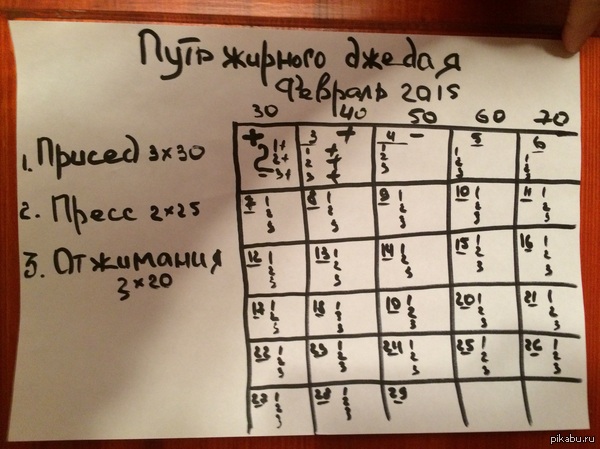 Путь жирного джедая
Февраль 2015
30 40 50 60 70
1. Присед 3×30
2. Пресс 2×25
3. Отжимания
3×20
+ 2 1+ 2+ 3+
3 + 1 + 2 + 3 +
4 - 1 2 3
5 1 2 3
6 1 2 3
7 1 2 3
8 1 2 3
9 1 2 3
10 1 2 3
11 1 2 3
12 1 2 3
13 1 2 3
14 1 2 3
15 1 2 3
16 1 2 3
17 1 2 3
18 1 2 3
19 1 2 3
20 1 2 3
21 1 2 3
22 1 2 3
23 1 2 3
24 1 2 3
25 1 2 3
26 1 2 3
27 1 2 3
28 1 2 3
29
pikabu.ru